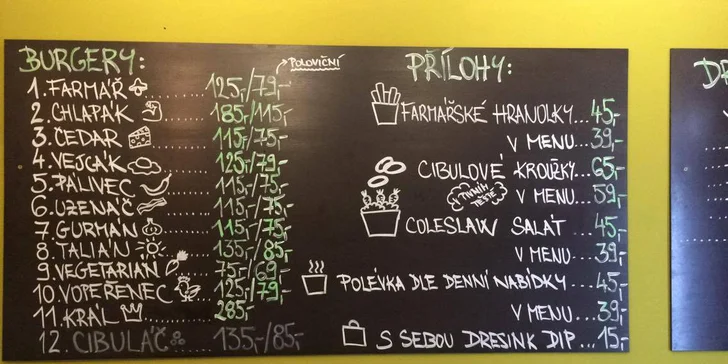 BURGERY:
POLOVIČNÍ
1. FARMÁŘ ........ 125,-/79,-
2. CHLAPÁK ........ 185,-/115,-
3. ČEDAR ........ 115,-/75,-
4. VEJCÁK ........ 125,-/79,-
5. PÁLIVEC ........ 115,-/75,-
6. UZENÁČ ........ 115,-/75,-
7. GURMÁN ........ 115,-/75,-
8. TALIÁN ........ 135,-/85,-
9. VEGETARIÁN .... 75,-/69,-
10. VOPEŘENEC .. 125,-/79,-
11. KRÁL ........ 285,-
12. CIBULÁČ 135,-/85,-
PŘÍLOHY:
FARMÁŘSKÉ HRANOLKY... 45,-
V MENU... 39,-
CIBULOVÉ KROUŽKY... 65,-
V PIVNÍM TĚSTĚ
V MENU... 59,-
COLESLAW SALÁT ... 45,-
V MENU... 39,-
POLÉVKA DLE DENNÍ NABÍDKY .... 45,-
V MENU... 39,-
S SEBOU DRESINK DIP... 15,-